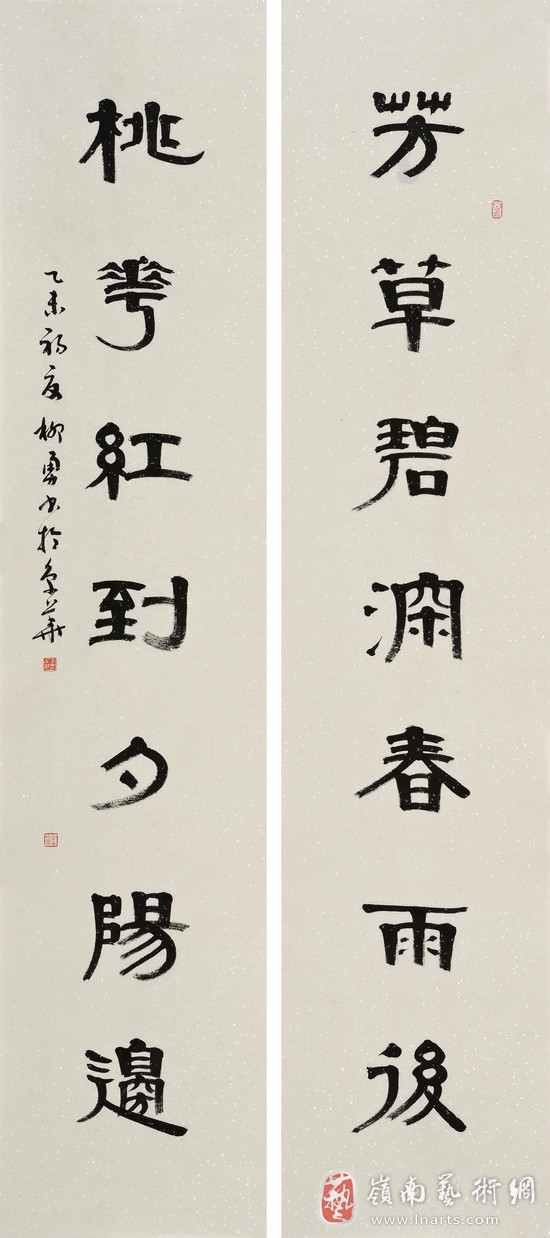 芳草碧深春雨後
桃花紅到夕陽邊
乙未初夏柳勇書於京華
嶺南藝術網
www.lnarts.com